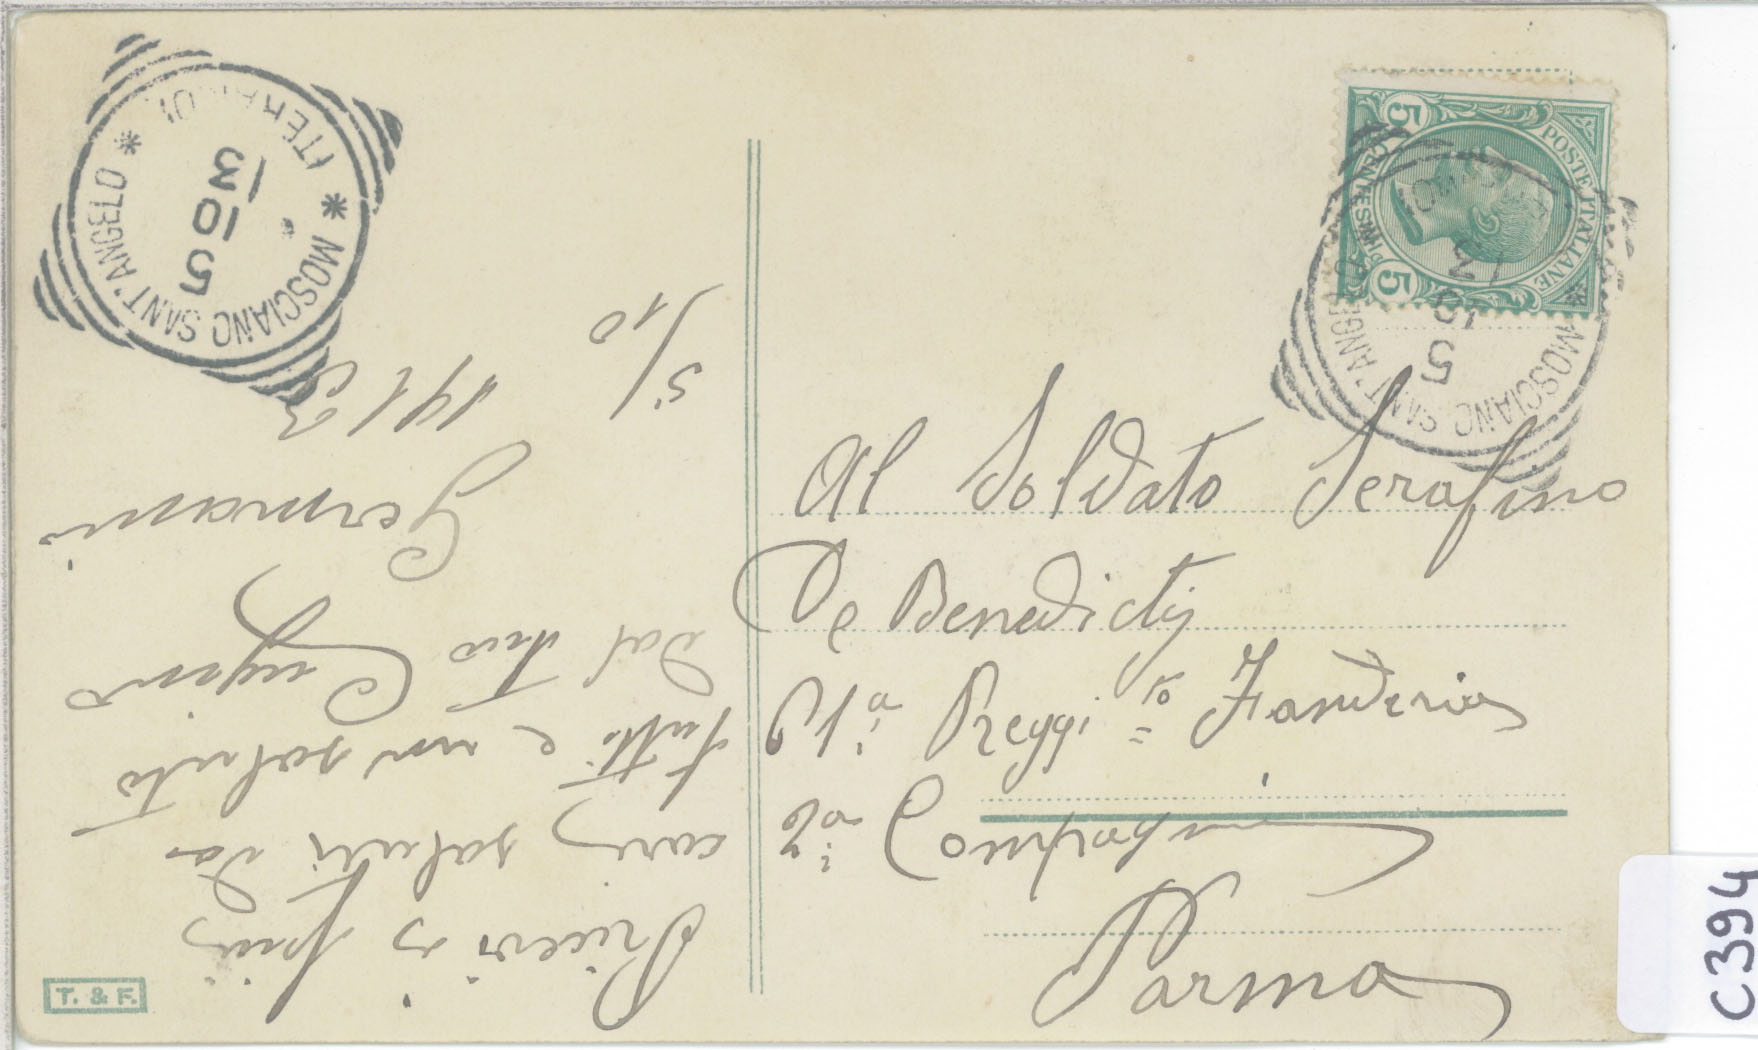 MOSCIANO SANT'ANGELO
(TERAMO)
5
10
13
POSTE ITALIANE
CENTESIMI
5
5
MOSCIANO SANT'ANGELO
5
10
13
Al Soldato Serafino
De Benedictis
61.a Reggi.to Fanteria
Compagnia
Parma
Ricevi i più
cari saluti da
tutti e un saluto
dal tuo Cugino
Germani
5/10
1913
T. & F.
C394